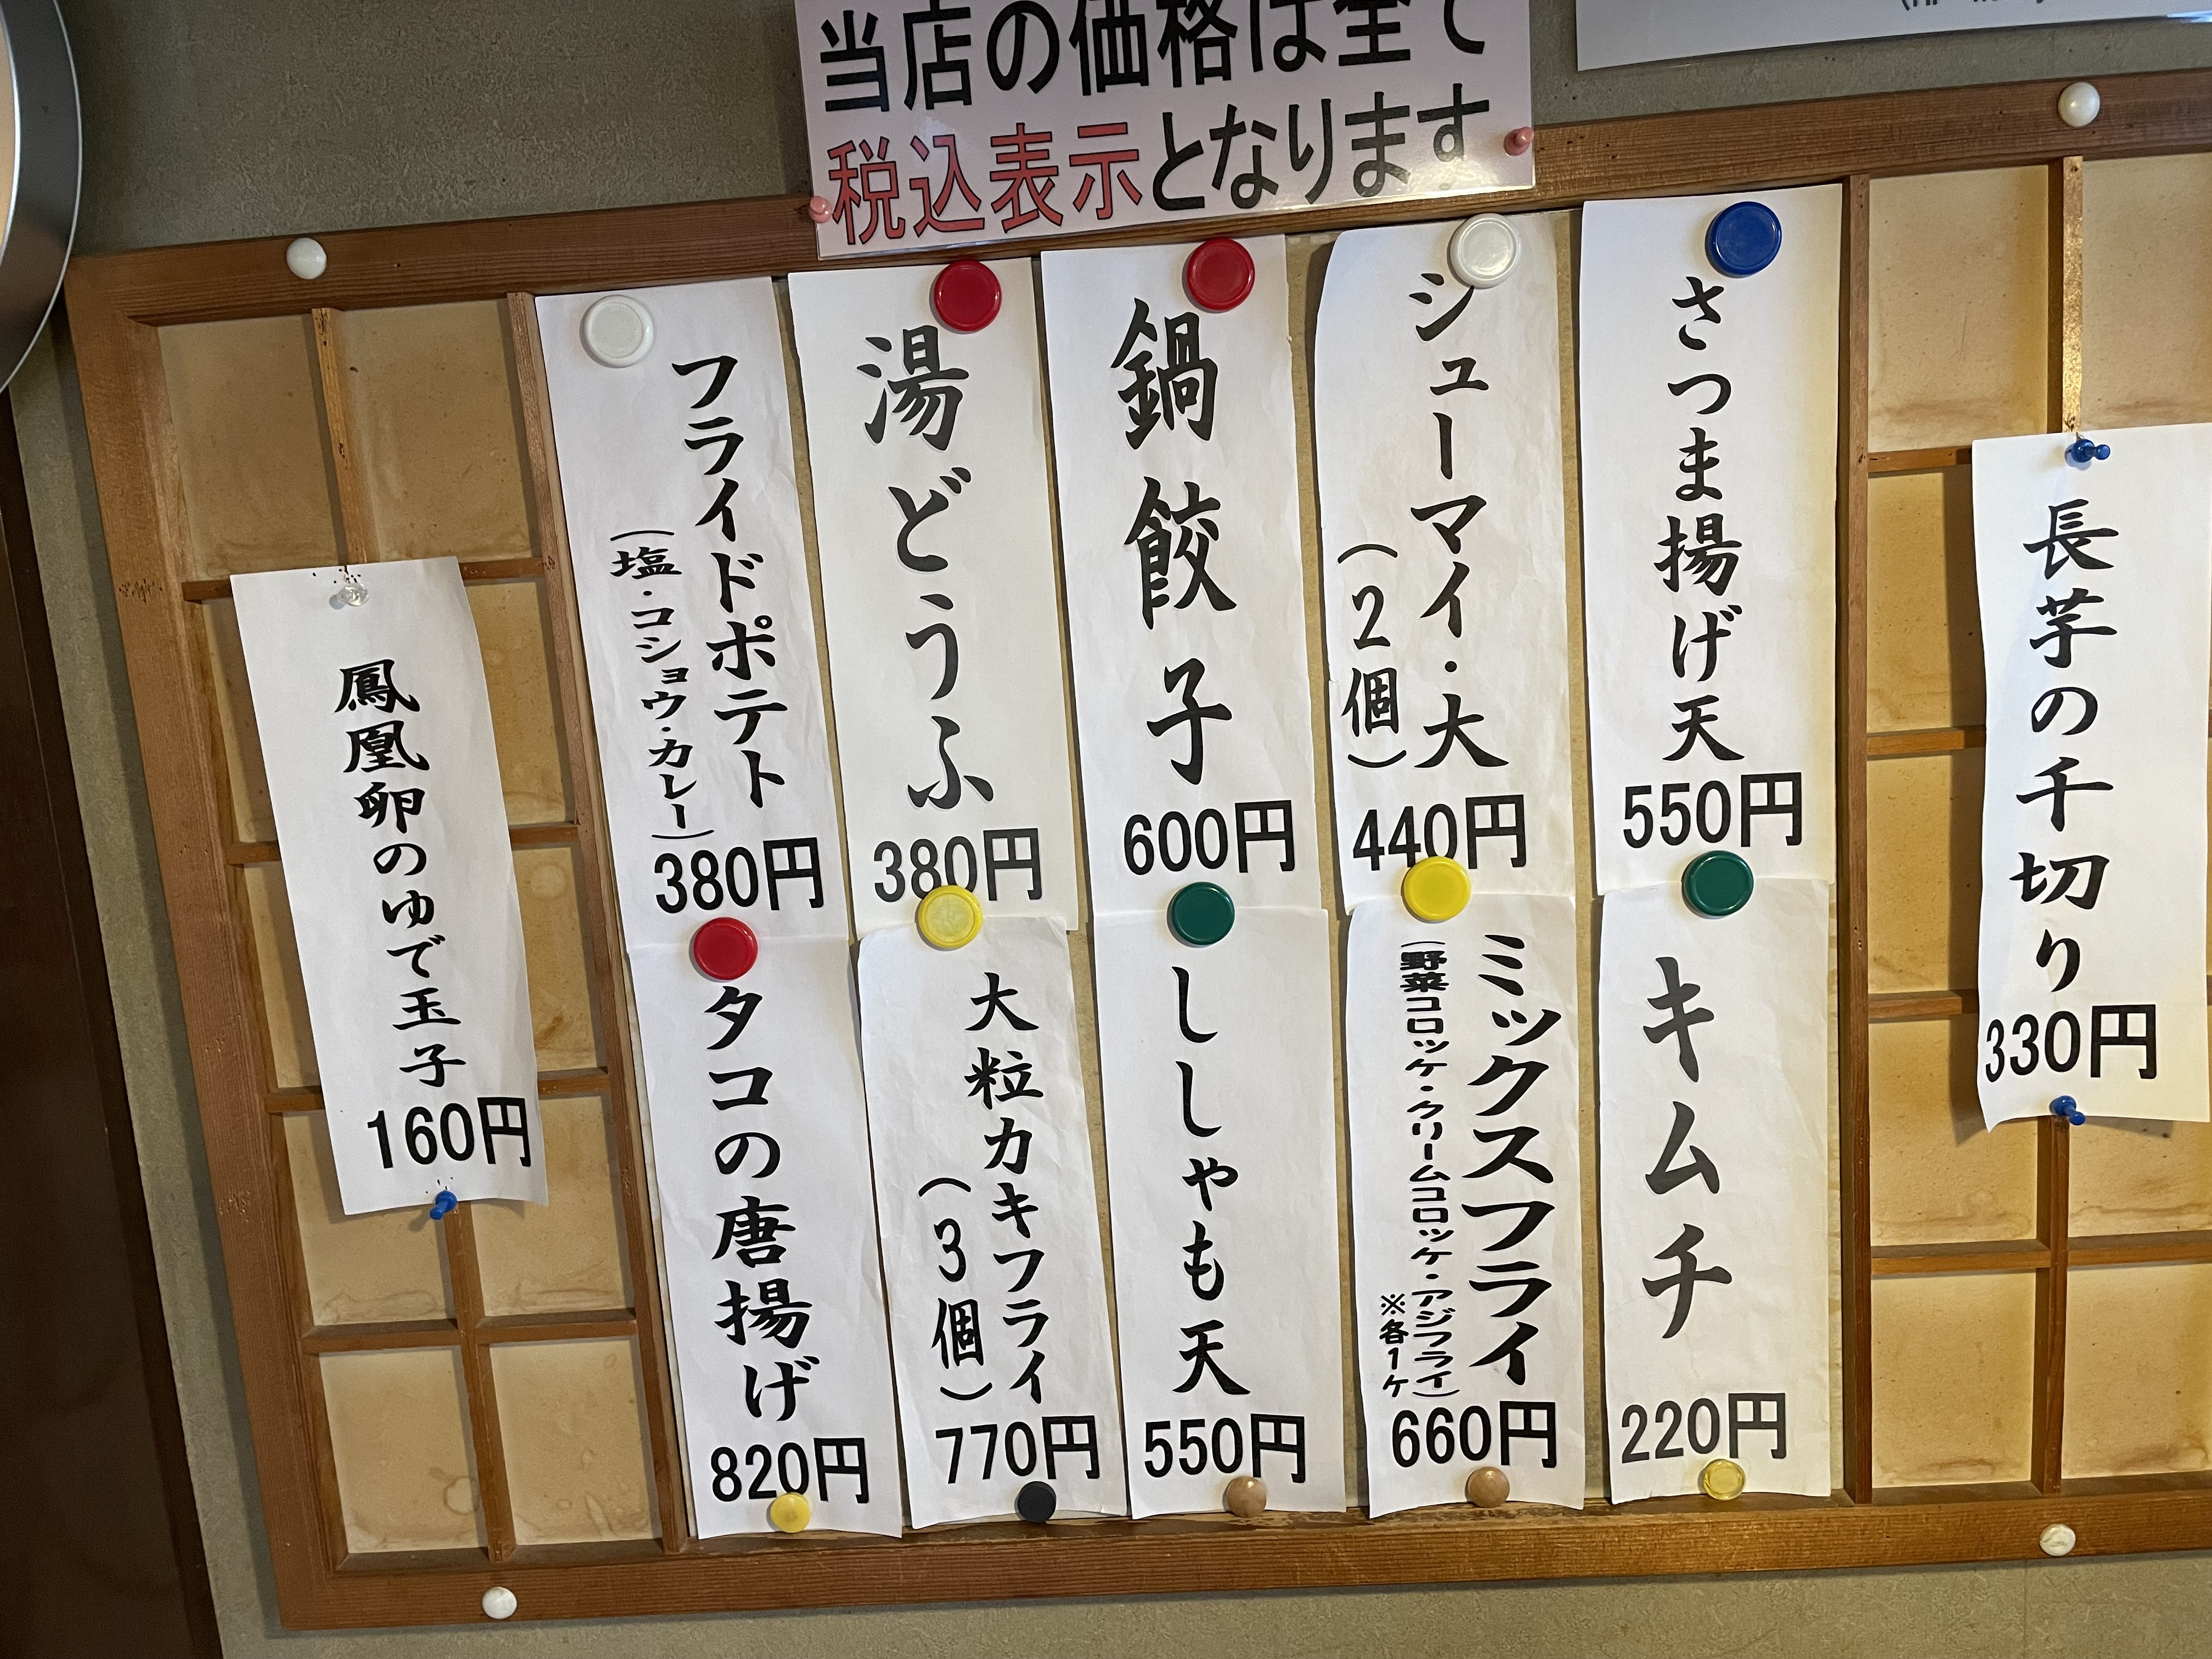 当店の価格は全て
税込表示となります
長芋の千切り
330円
さつま揚げ天
550円
シューマイ・大
(2個)
440円
鍋餃子
600円
湯どうふ
380円
フライドポテト
(塩・コショウ・カレー)
380円
キムチ
220円
ミックスフライ
(野菜コロッケ・クリームコロッケ・アジフライ)
※各1ケ
660円
ししゃも天
550円
大粒カキフライ
(3個)
770円
タコの唐揚げ
820円
鳳凰卵のゆで玉子
160円